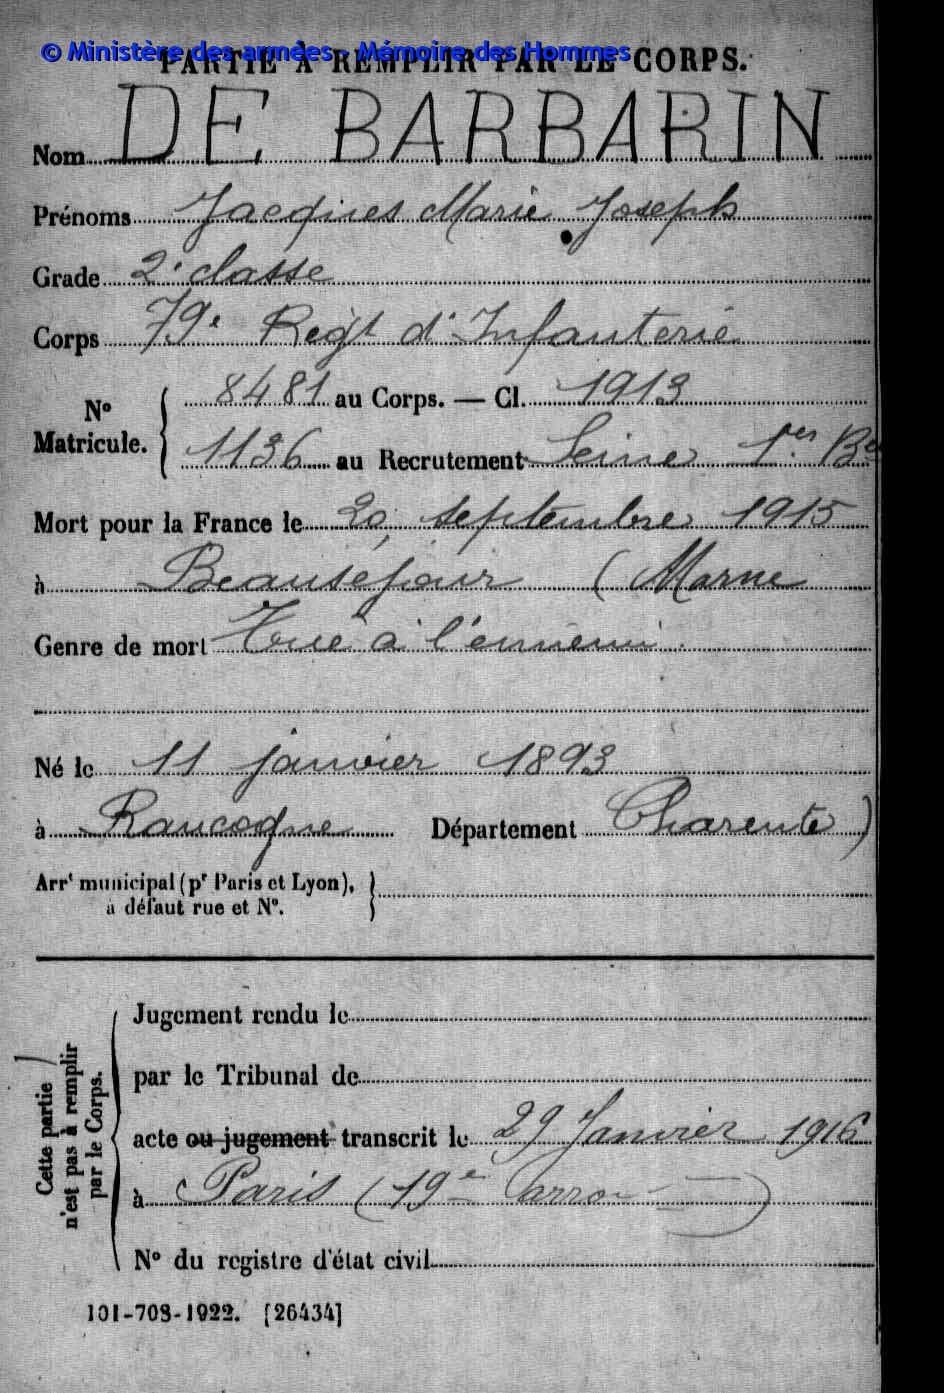 © Ministère des armées - Mémoire des Hommes
PARTIE À REMPLIR PAR LE CORPS.
Nom DE BARBARIN
Prénoms Jacques Marie Joseph
Grade 2e classe
Corps 79e Régt d'Infanterie
No Matricule. { 8481 au Corps. — Cl. 1913
1136 au Recrutement Seine 1er Bau
Mort pour la France le 20 septembre 1915
à Beauséjour (Marne
Genre de mort Tué à l'ennemi.
Né le 11 janvier 1893
à Rancogne Département Charente)
Arrt municipal (pr Paris et Lyon), }
à défaut rue et No.
Cette partie n'est pas à remplir par le Corps.
Jugement rendu le
par le Tribunal de
acte ou jugement transcrit le 29 Janvier 1916
à Paris (19e arron)
No du registre d'état civil
101-708-1922. [26434]